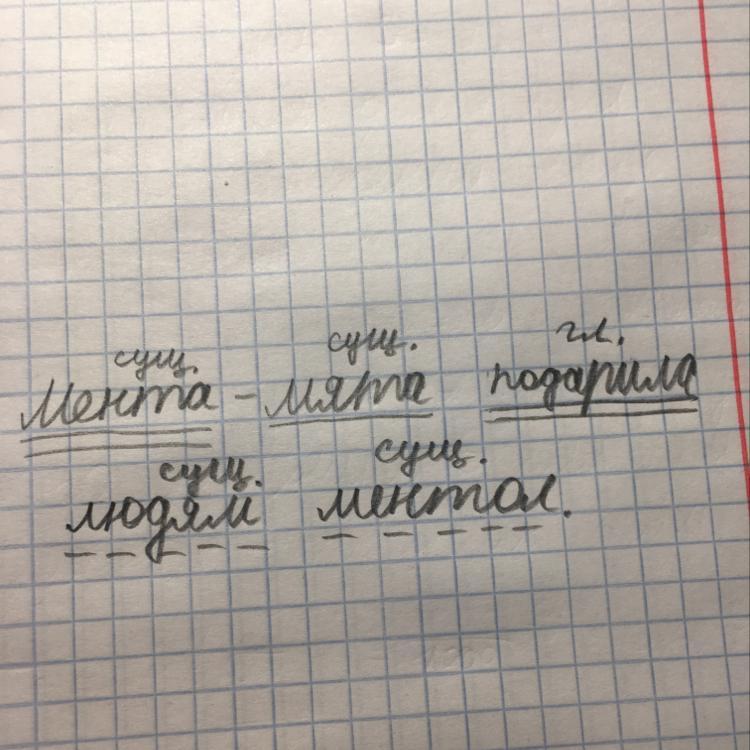 сущ. сущ. гл.
Мента - мята подарила
сущ. сущ.
людям ментол.